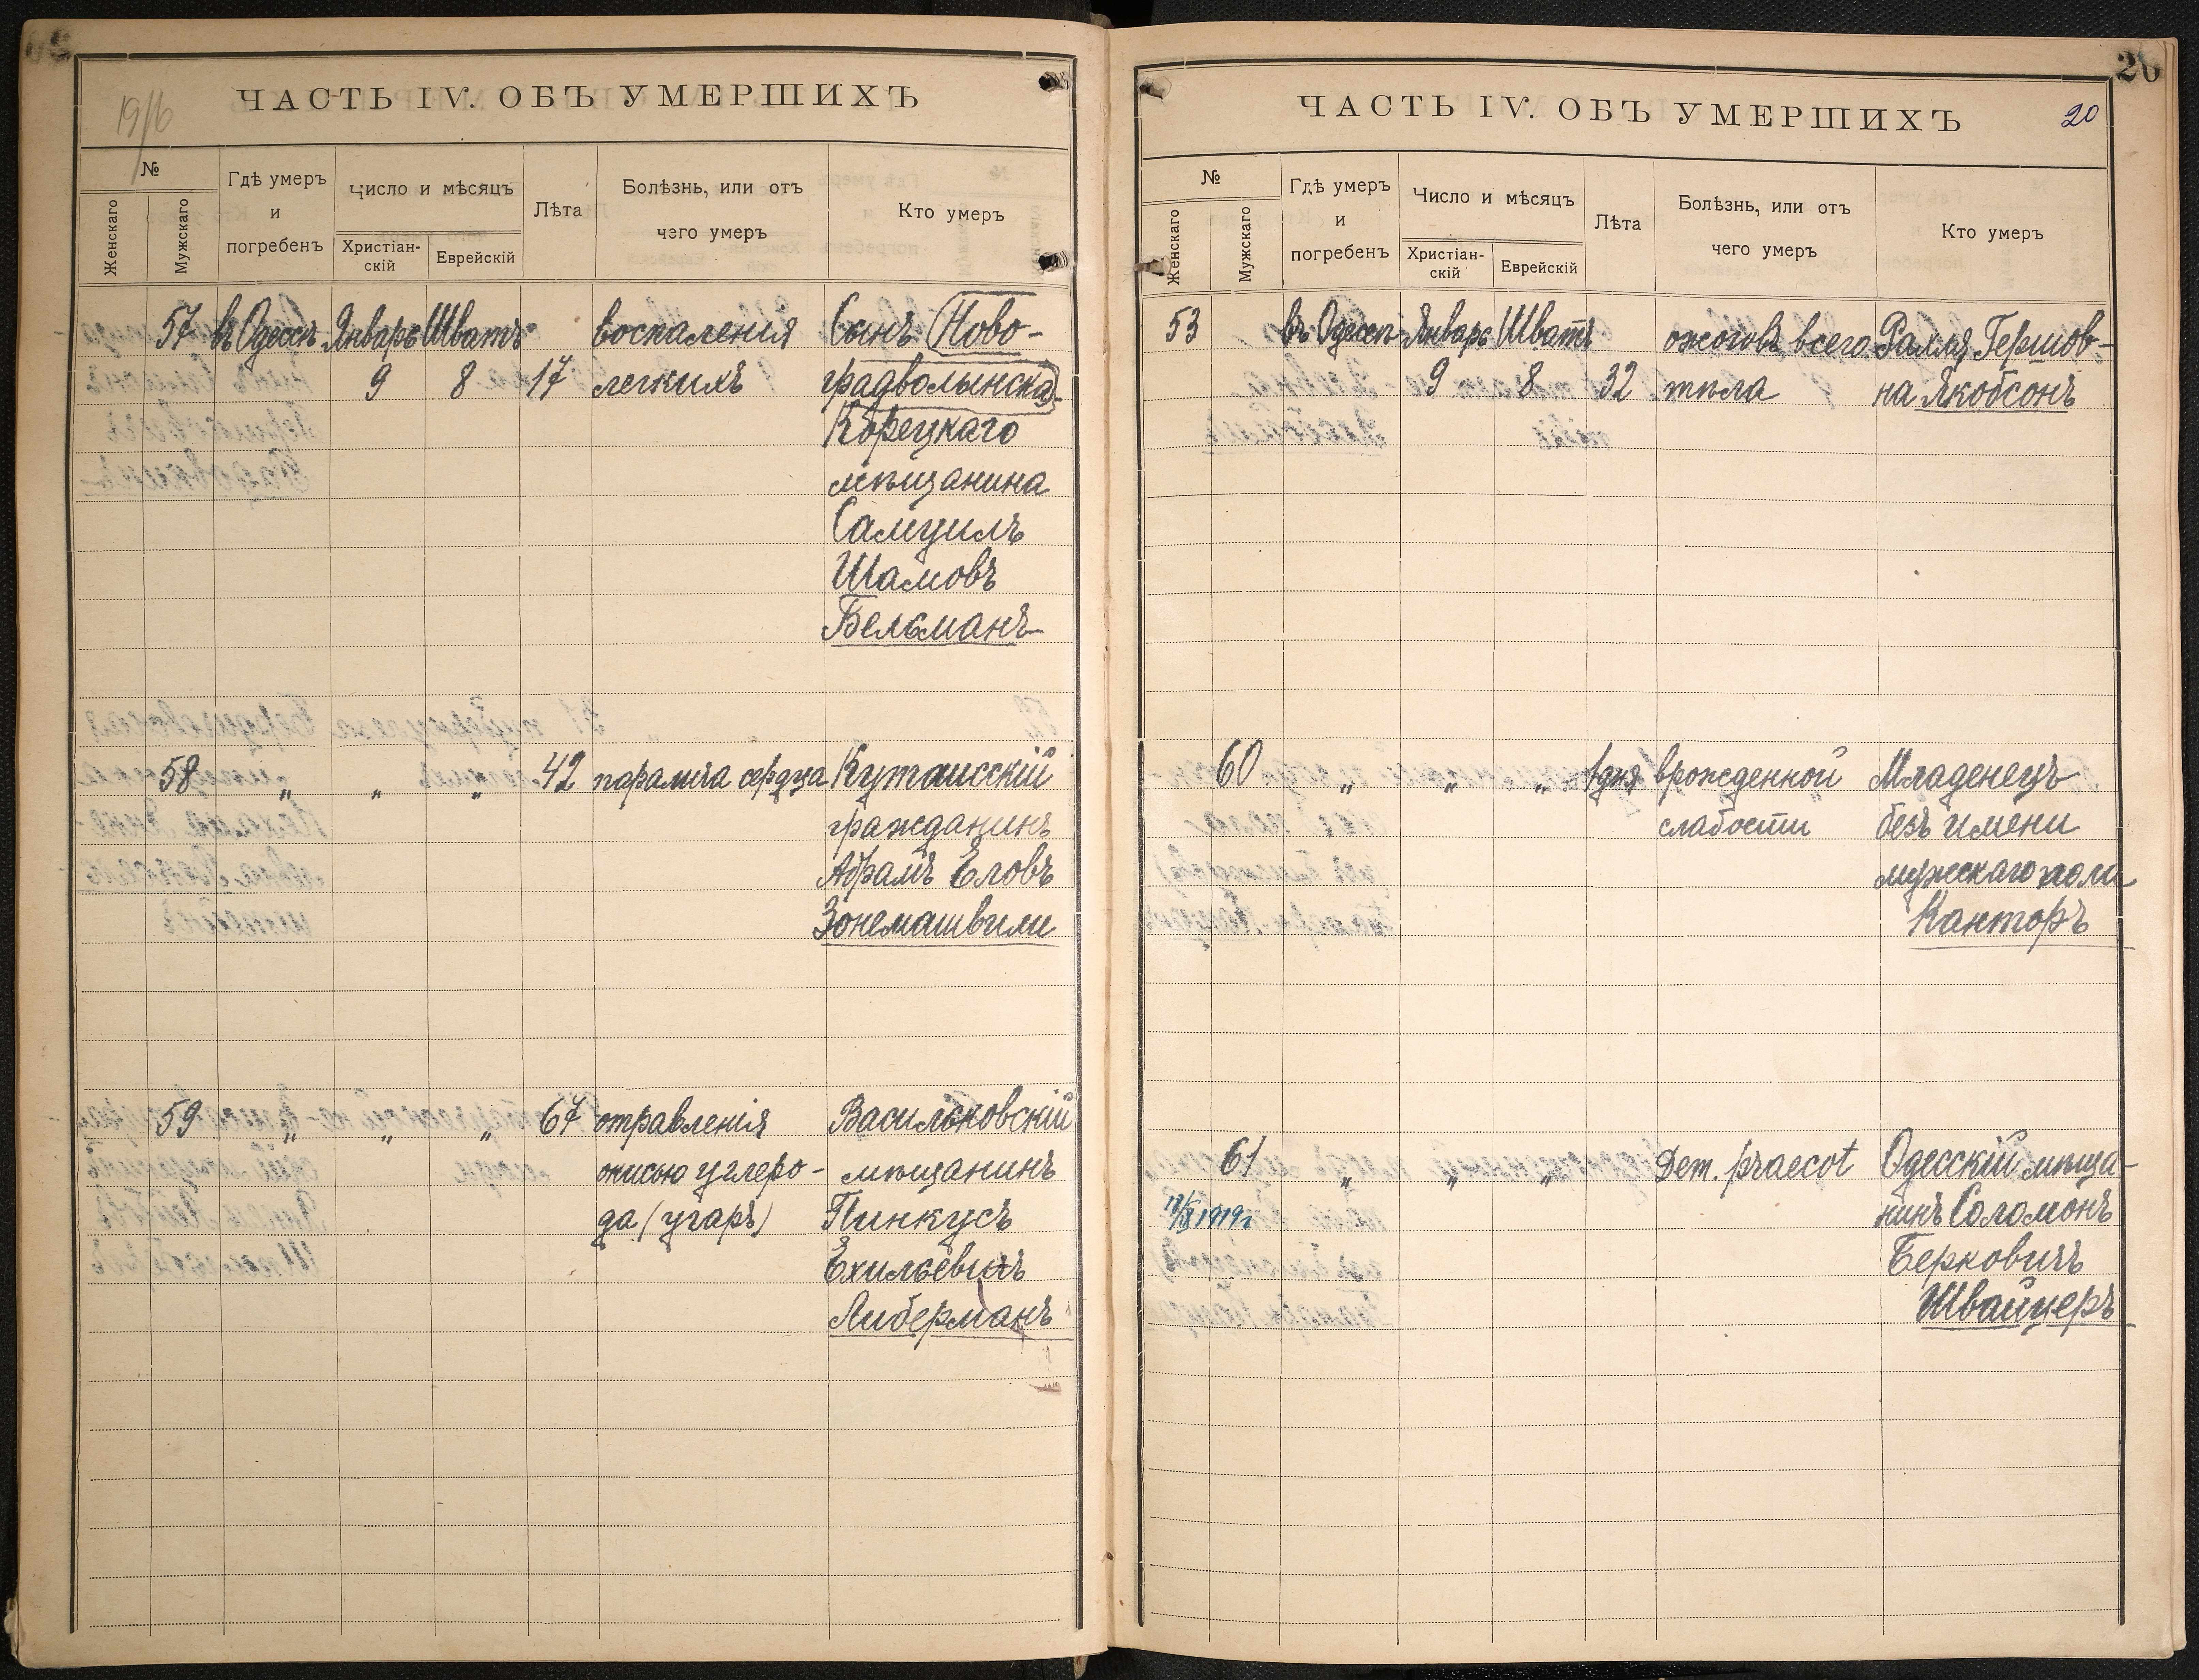 1916
ЧАСТЬ IV. ОБЪ УМЕРШИХЪ
№
Женскаго
Мужскаго
Гдѣ умеръ
и
погребенъ
Число и мѣсяцъ
Христіан-
скій
Еврейскій
Лѣта
Болѣзнь, или отъ
чего умеръ
Кто умеръ
57 въ Одессѣ Январь Шватъ воспаленія Сынъ Ново-
9 8 17 легкихъ градволынска-
Корецкаго
мѣщанина
Самуилъ
Шамовъ
Бельманъ
58 " " " 42 паралича сердца Кутаисскій
гражданинъ
Абрамъ Еловъ
Зонемашвили
59 " " " 67 отравленія Васильковскій
окисью углеро- мѣщанинъ
да (угаръ) Пинкусъ
Ехильевичъ
Либерманъ
20
ЧАСТЬ IV. ОБЪ УМЕРШИХЪ
20
№
Женскаго
Мужскаго
Гдѣ умеръ
и
погребенъ
Число и мѣсяцъ
Христіан-
скій
Еврейскій
Лѣта
Болѣзнь, или отъ
чего умеръ
Кто умеръ
53 въ Одессѣ Январь Шватъ ожоговъ всего Раллл Гершов-
9 8 32 тѣла на Якобсонъ
60 " " " 1 дня врожденной Младенецъ
слабости безъ имени
мужскаго пола
Канторъ
61 " " " Dem. praecot Одесскій мѣща-
1919г нинъ Соломонъ
Берковичъ
Швайцеръ